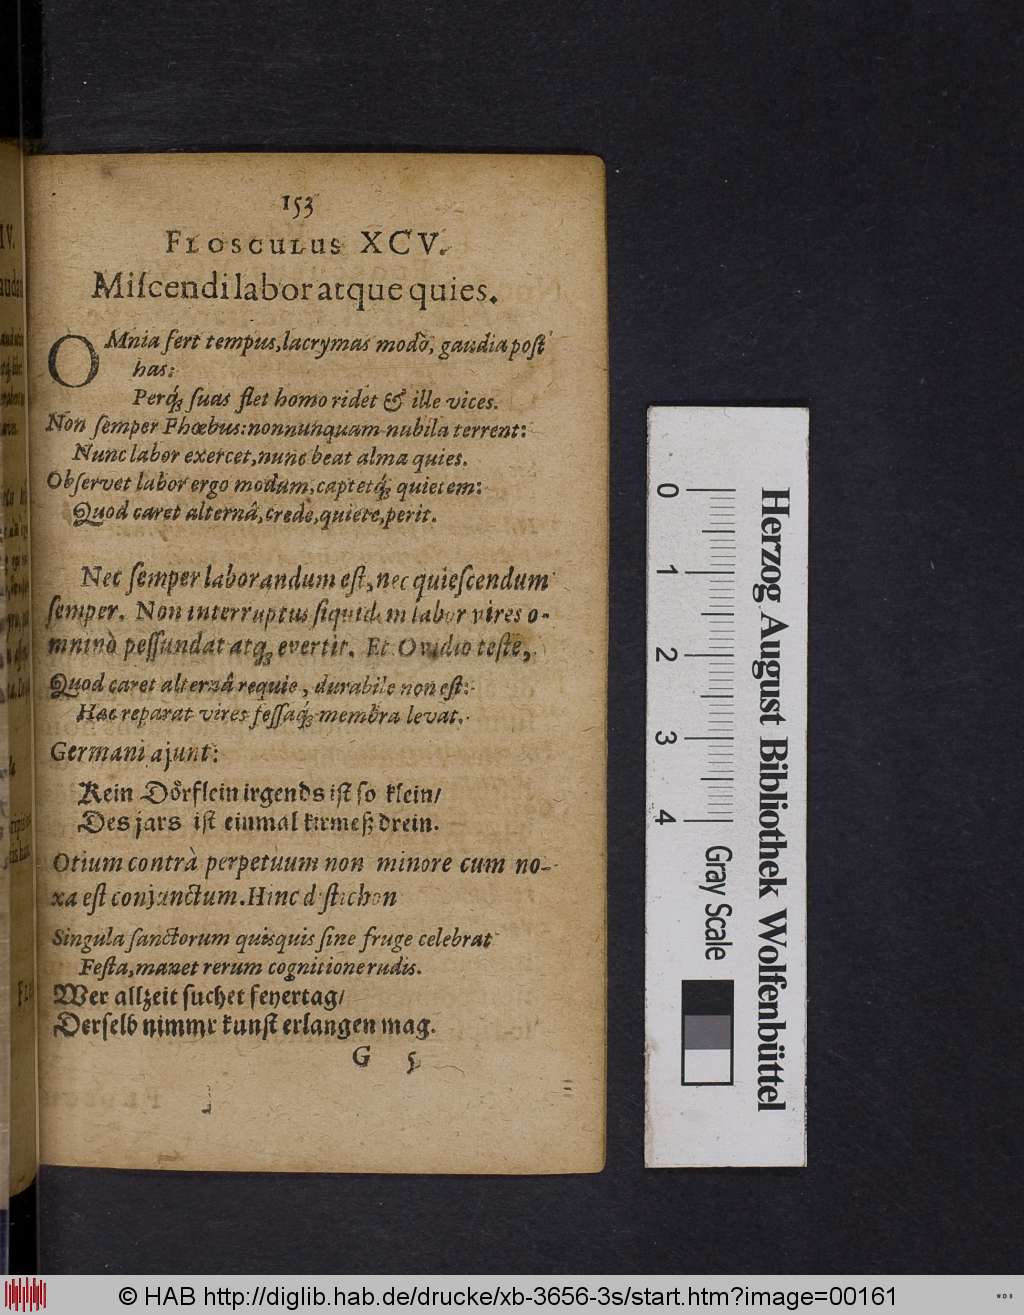 153
FLOSCULUS XCV.
Miſcendi labor atque quies.
OMnia fert tempus, lacrymas modò, gaudia poſt
has:
Perq́; ſuas flet homo ridet & ille vices.
Non ſemper Phœbus: nonnunquam nubila terrent:
Nunc labor exercet, nunc beat alma quies.
Obſervet labor ergo modum, captetq́; quietem:
Quod caret alternâ, crede, quiete, perit.
Nec ſemper laborandum eſt, nec quieſcendum
ſemper. Non interruptus ſiquidem labor vires o-
mninò peſſundat atq; evertit. Et Ovidio teſte,
Quod caret alternâ requie, durabile non eſt:
Hæc reparat vires feſſaq́; membra levat.
Germani ajunt:
Kein Doͤrflein irgends iſt ſo klein/
Des jars iſt einmal kirmeß drein.
Otium contrà perpetuum non minore cum no-
xa eſt conjunctum. Hinc diſtichon
Singula ſanctorum quisquis ſine fruge celebrat
Feſta, manet rerum cognitione rudis.
Wer allzeit ſuchet feyertag/
Derſelb nimmr kunſt erlangen mag.
G 5
0 1 2 3 4
Herzog August Bibliothek Wolfenbüttel
Gray Scale
© HAB http://diglib.hab.de/drucke/xb-3656-3s/start.htm?image=00161